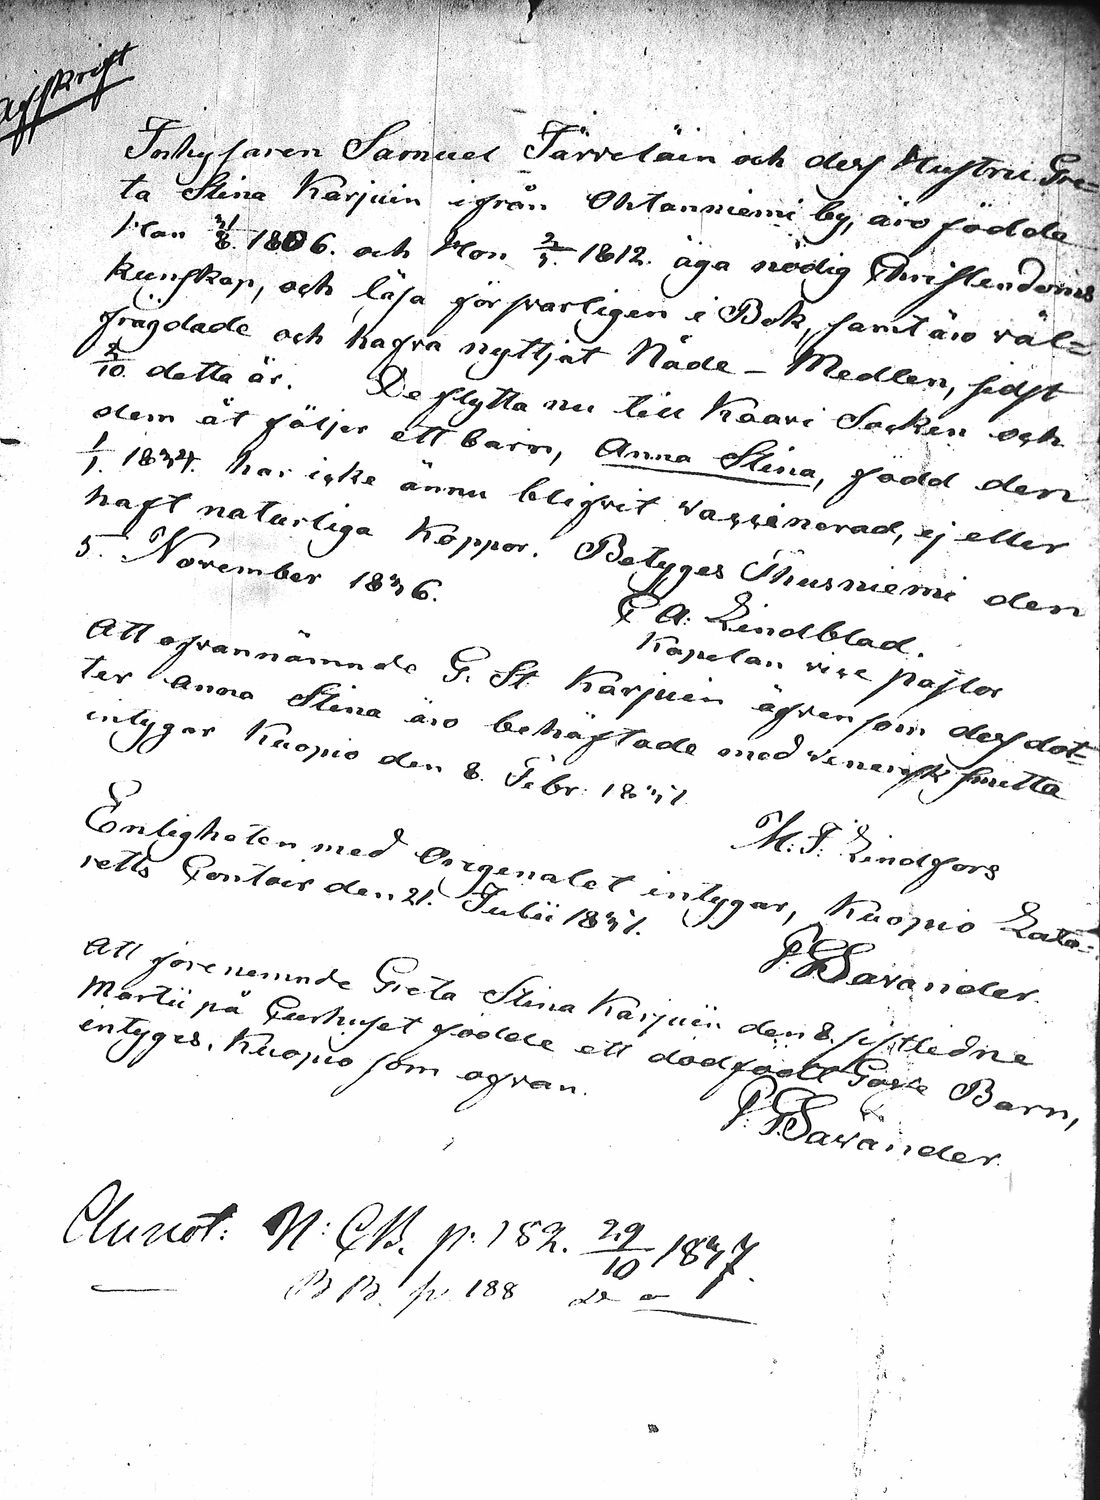 Afskrift
Inhysaren Samuel Järveläin och dess Hustru Gre=
ta Stina Karjuin ifrån Ohtanniemi by, äro födde
Han 31/8. 1806. och Hon 2/5. 1812. äga nödig Christendoms
kunskap, och läsa försvarligen i Bok, samt äro väl=
frägdade och hafva nyttjat Nåde-Medlen, sidst
2/10 detta år. De flytta nu till Kaavi Socken och
dem åt följer ett barn, Anna Stina, född den
1/1. 1834. har icke ännu blifvit vaccinerad, ej eller
haft naturliga Koppor. Betyges Thusniemi den
5. November 1836.
P A. Lindblad.
Kapelan vice pastor
Att ofvannämnde G. St. Karjuin äfvensom dess dot=
ter Anna Stina äro behäftade med venerisk smitta
intygar Kuopio den 8. Febr. 1837
M. F. Lindfors
Enligheten med Orgenalet intygar, Kuopio Laza=
retts Contoir den 21. Julii 1837.
F. G. Savander.
Att förenemnde Greta Stina Karjuin den 8. sistledne
Martii på Curhuset födde ett dödfödt Gosse Barn,
intyges. Kuopio som ofvan.
F. G. Savander
Annot: N: C.B. p. 182. 29/10 1837.
B B. p. 188